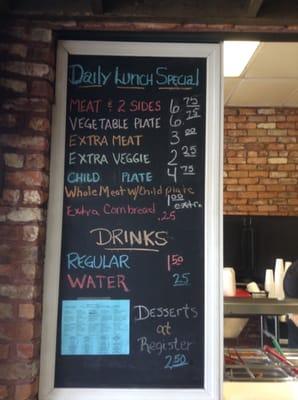 Daily Lunch Special
MEAT & 2 SIDES 6.75
VEGETABLE PLATE 6.75
EXTRA MEAT 3.00
EXTRA VEGGIE 2.25
CHILD PLATE 4.75
Whole Meat w/Child plate 1.00 extra
Extra Cornbread .25
DRINKS
REGULAR 1.50
WATER .25
Desserts
at
Register
2.50